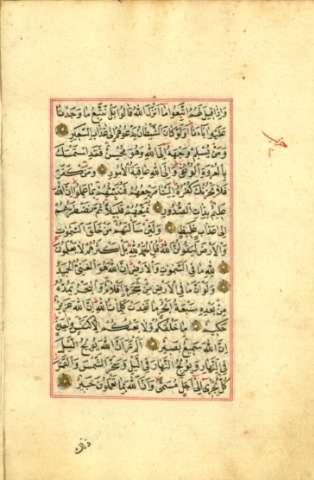 وَاِذَا قِيلَ لَهُمُ اتَّبِعُوا مَا اَنْزَلَ اللهُ قَالُوا بَلْ نَتَّبِعُ مَا وَجَدْنَا
عَلَيْهِ اٰبَاءَنَا اَوَلَوْ كَانَ الشَّيْطَانُ يَدْعُوهُمْ اِلٰى عَذَابِ السَّعِيرِ
وَمَنْ يُسْلِمْ وَجْهَهُ اِلَى اللهِ وَهُوَ مُحْسِنٌ فَقَدِ اسْتَمْسَكَ
بِالْعُرْوَةِ الْوُثْقٰى وَاِلَى اللهِ عَاقِبَةُ الْاُمُورِ وَمَنْ كَفَرَ
فَلَا يَحْزُنْكَ كُفْرُهُ اِلَيْنَا مَرْجِعُهُمْ فَنُنَبِّئُهُمْ بِمَا عَمِلُوا اِنَّ اللهَ
عَلِيمٌ بِذَاتِ الصُّدُورِ نُمَتِّعُهُمْ قَلِيلًا ثُمَّ نَضْطَرُّهُمْ
اِلٰى عَذَابٍ غَلِيظٍ وَلَئِنْ سَاَلْتَهُمْ مَنْ خَلَقَ السَّمٰوَاتِ
وَالْاَرْضَ لَيَقُولُنَّ اللهُ قُلِ الْحَمْدُ لِلّٰهِ بَلْ اَكْثَرُهُمْ لَا يَعْلَمُونَ
لِلّٰهِ مَا فِى السَّمٰوَاتِ وَالْاَرْضِ اِنَّ اللهَ هُوَ الْغَنِىُّ الْحَمِيدُ
وَلَوْ اَنَّ مَا فِى الْاَرْضِ مِنْ شَجَرَةٍ اَقْلَامٌ وَالْبَحْرُ يَمُدُّهُ
مِنْ بَعْدِهِ سَبْعَةُ اَبْحُرٍ مَا نَفِدَتْ كَلِمَاتُ اللهِ اِنَّ اللهَ عَزِيزٌ
حَكِيمٌ مَا خَلْقُكُمْ وَلَا بَعْثُكُمْ اِلَّا كَنَفْسٍ وَاحِدَةٍ
اِنَّ اللهَ سَمِيعٌ بَصِيرٌ اَلَمْ تَرَ اَنَّ اللهَ يُولِجُ الَّيْلَ
فِى النَّهَارِ وَيُولِجُ النَّهَارَ فِى الَّيْلِ وَسَخَّرَ الشَّمْسَ وَالْقَمَرَ
كُلٌّ يَجْرِى اِلٰى اَجَلٍ مُسَمًّى وَاَنَّ اللهَ بِمَا تَعْمَلُونَ خَبِيرٌ
ذٰلك